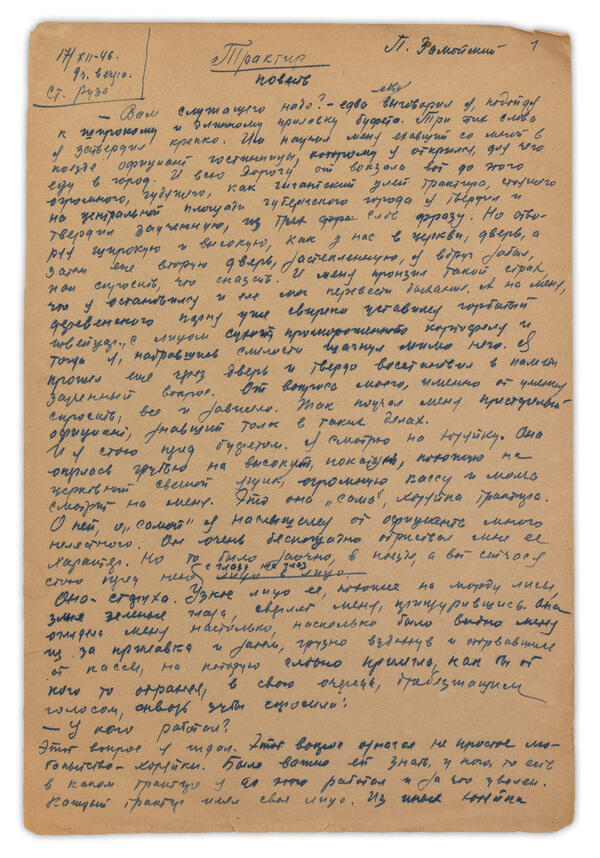 17/XII-46.
9ч. вечер.
Ст. Руза
П. Замойский
1
Трактир
повесть
— Вам служащего надо? — едва выговорил я, подойдя
к широкому и длинному прилавку буфета. Три тех слова
я затвердил крепко. Им научил меня ехавший со мной в
поезде официант гостиницы, которому я открылся, для чего
еду в город. И всю дорогу от вокзала вот до этого
огромного, гудящего, как гигантский улей трактира, стоящего
на центральной площади губернского города я твердил и
твердил заученную, из трех слов фразу. Но отво-
рил широкую и высокую, как у нас в церкви, дверь, а
затем еще вторую дверь, застекленную, я вдруг забыл,
как спросить, что сказать. И меня пронзил такой страх,
что я остановился и не мог перевести дыхания. А на меня,
деревенского парня уже свирепо уставился горбатый
швейцар, с лицом промороженного картофеля и
тогда я, набравшись смелости шагнул мимо него. Я
прошел еще через дверь и твердо восстановил в памяти
заученный вопрос. От вопроса моего, именно от умения
спросить, все и зависело. Так поучал меня
официант, знавший толк в таких делах.
И я стою пред буфетом. Я смотрю на хозяйку. Она
оперлась грудью на высокую, покатую, похожую на
церковный свечной ящик, огромную кассу и молча
смотрит на меня. Это она „сама“, хозяйка трактира.
О ней, о „самой“ я наслышался от официанта много
нелестного. Он очень беспощадно обрисовал мне ее
характер. Но то было заочно, в поезде, а вот сейчас я
стою пред нею с глазу на глаз лицо в лицо.
Она - старуха. Узкое лицо ее, похожее на морду лисы,
злые зеленые глаза, сверлят меня, прищурившись. Она
оглядела меня настолько, насколько было видно меня
из за прилавка и затем, грузно вздохнув и оторвавшись
от кассы, на которую словно прилегла, как бы от
кого то охраняя, в свою очередь, дребезжащим
голосом, сквозь зубы спросила:
— У кого работал?
Этот вопрос я ждал. Этот вопрос означал не простое лю-
бопытство - хозяйки. Было важно ей знать, у кого, то есть
в каком трактире я до этого работал и за что уволен.
Каждый трактир имел свое лицо. Из иных хозяйка